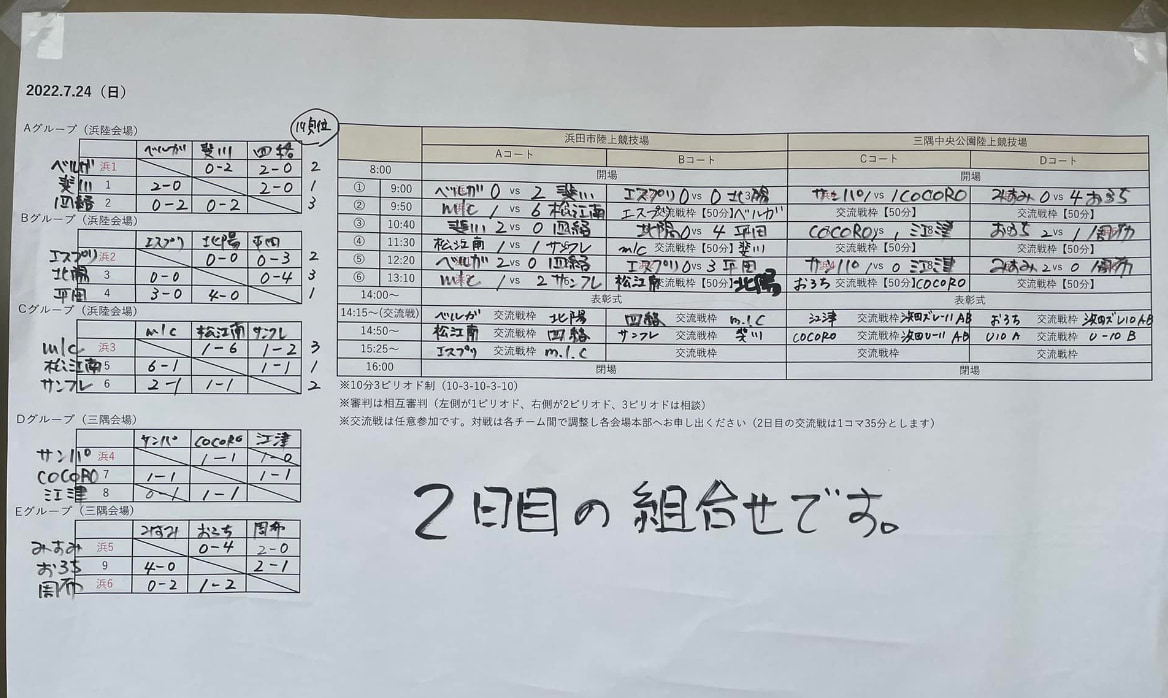 2022.7.24（日）
Aグループ（浜陸会場） 順位
ベルガ 斐川 四絡
ベルガ 浜1 0-2 2-0 2
斐川 1 2-0 2-0 1
四絡 2 0-2 0-2 3
Bグループ（浜陸会場）
エスプリ 北陽 平田
エスプリ 浜2 0-0 0-3 2
北陽 3 0-0 0-4 3
平田 4 3-0 4-0 1
Cグループ（浜陸会場）
m/c 松江南 サンフレ
m/c 浜3 1-6 1-2 3
松江南 5 6-1 1-1 1
サンフレ 6 2-1 1-1 2
Dグループ（三隅会場）
サンパ COCORO 江津
サンパ 浜4 1-1 1-0
COCORO 7 1-1 1-1
江津 8 0-1 1-1
Eグループ（三隅会場）
みすみ おろち 周布
みすみ 浜5 0-4 2-0
おろち 9 4-0 2-1
周布 浜6 0-2 1-2
浜田市陸上競技場 三隅中央公園陸上競技場
Aコート Bコート Cコート Dコート
8:00 開場 開場
① 9:00 ベルガ 0 vs 2 斐川 エスプリ 0 vs 0 北陽 1 vs 1 COCORO みすみ 0 vs 4 おろち
② 9:50 m/c 1 vs 6 松江南 エスプリ 交流戦枠【50分】 ベルガ 交流戦枠【50分】 交流戦枠【50分】
③ 10:40 斐川 2 vs 0 四絡 北陽 0 vs 4 平田 COCORO vs 1 江津 おろち 2 vs 1 周布
④ 11:30 松江南 1 vs 1 サンフレ m/c 交流戦枠【50分】 斐川 交流戦枠【50分】 交流戦枠【50分】
⑤ 12:20 ベルガ 2 vs 0 四絡 エスプリ 0 vs 3 平田 1 vs 0 江津 みすみ 2 vs 0 周布
⑥ 13:10 m/c 1 vs 2 サンフレ 松江南 交流戦枠【50分】 北陽 おろち 交流戦枠【50分】 COCORO 交流戦枠【50分】
14:00～ 表彰式 表彰式
14:15～(交流戦) ベルガ 交流戦枠 北陽 四絡 交流戦枠 m.i.C 江津 交流戦枠 浜田JrU-11 AB おろち 交流戦枠 浜田JrU10AB
14:50～ 松江南 交流戦枠 四絡 サンフレ 交流戦枠 斐川 COCORO 交流戦枠 浜田U-11 AB U10 A 交流戦枠 U-10 B
15:25～ エスプリ 交流戦枠 m.i.C 交流戦枠 交流戦枠 交流戦枠
16:00 閉場 閉場
※10分3ピリオド制（10-3-10-3-10）
※審判は相互審判（左側が1ピリオド、右側が2ピリオド、3ピリオドは相談）
※交流戦は任意参加です。対戦は各チーム間で調整し各会場本部へお申し出ください（2日目の交流戦は1コマ35分とします）
2日目の組合せです。